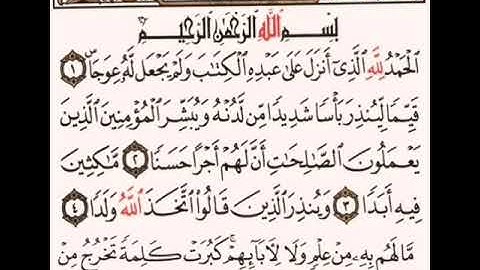 بِسْمِ ٱللَّهِ ٱلرَّحْمَٰنِ ٱلرَّحِيمِ
ٱلْحَمْدُ لِلَّهِ ٱلَّذِىٓ أَنزَلَ عَلَىٰ عَبْدِهِ ٱلْكِتَٰبَ وَلَمْ يَجْعَل لَّهُۥ عِوَجَاۜ ١
قَيِّمًا لِّيُنذِرَ بَأْسًا شَدِيدًا مِّن لَّدُنْهُ وَيُبَشِّرَ ٱلْمُؤْمِنِينَ ٱلَّذِينَ
يَعْمَلُونَ ٱلصَّٰلِحَٰتِ أَنَّ لَهُمْ أَجْرًا حَسَنًا ٢ مَّٰكِثِينَ
فِيهِ أَبَدًا ٣ وَيُنذِرَ ٱلَّذِينَ قَالُوا۟ ٱتَّخَذَ ٱللَّهُ وَلَدًا ٤
مَّا لَهُم بِهِۦ مِنْ عِلْمٍ وَلَا لِءَابَآئِهِمْ ۚ كَبُرَتْ كَلِمَةً تَخْرُجُ مِنْ